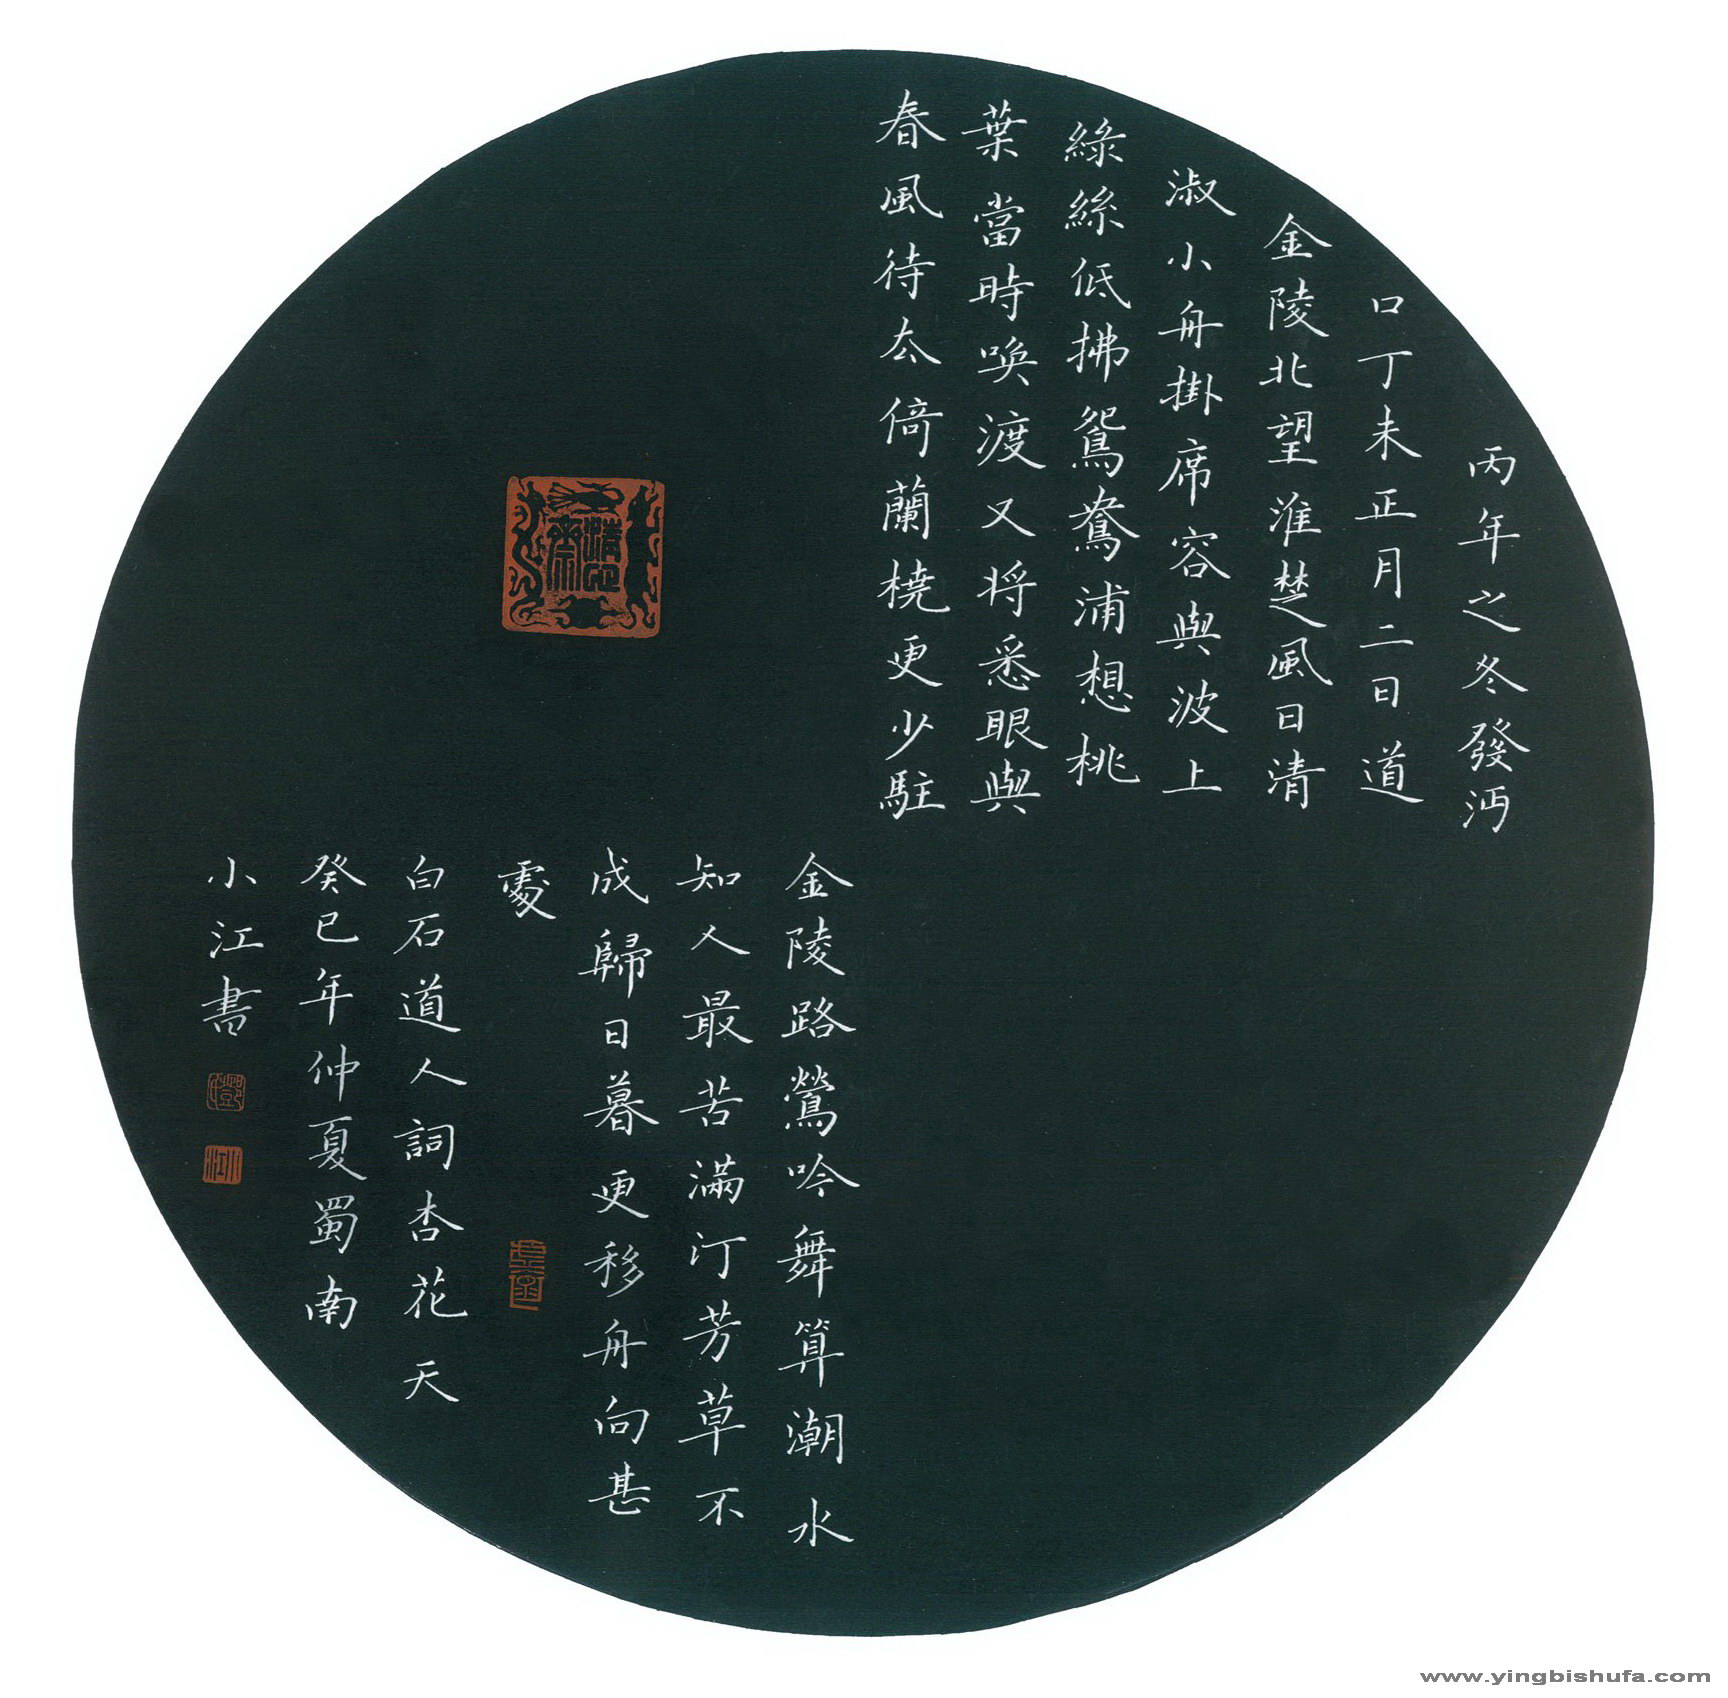 丙年之冬發沔
口丁未正月二日道
金陵北望淮楚風日清
淑小舟掛席容與波上
綠絲低拂鴛鴦浦想桃
葉當時喚渡又將愁眼與
春風待去倚蘭橈更少駐
金陵路鶯吟舞算潮水
知人最苦滿汀芳草不
成歸日暮更移舟向甚
處
白石道人詞杏花天
癸巳年仲夏蜀南
小江書
www.yingbishufa.com